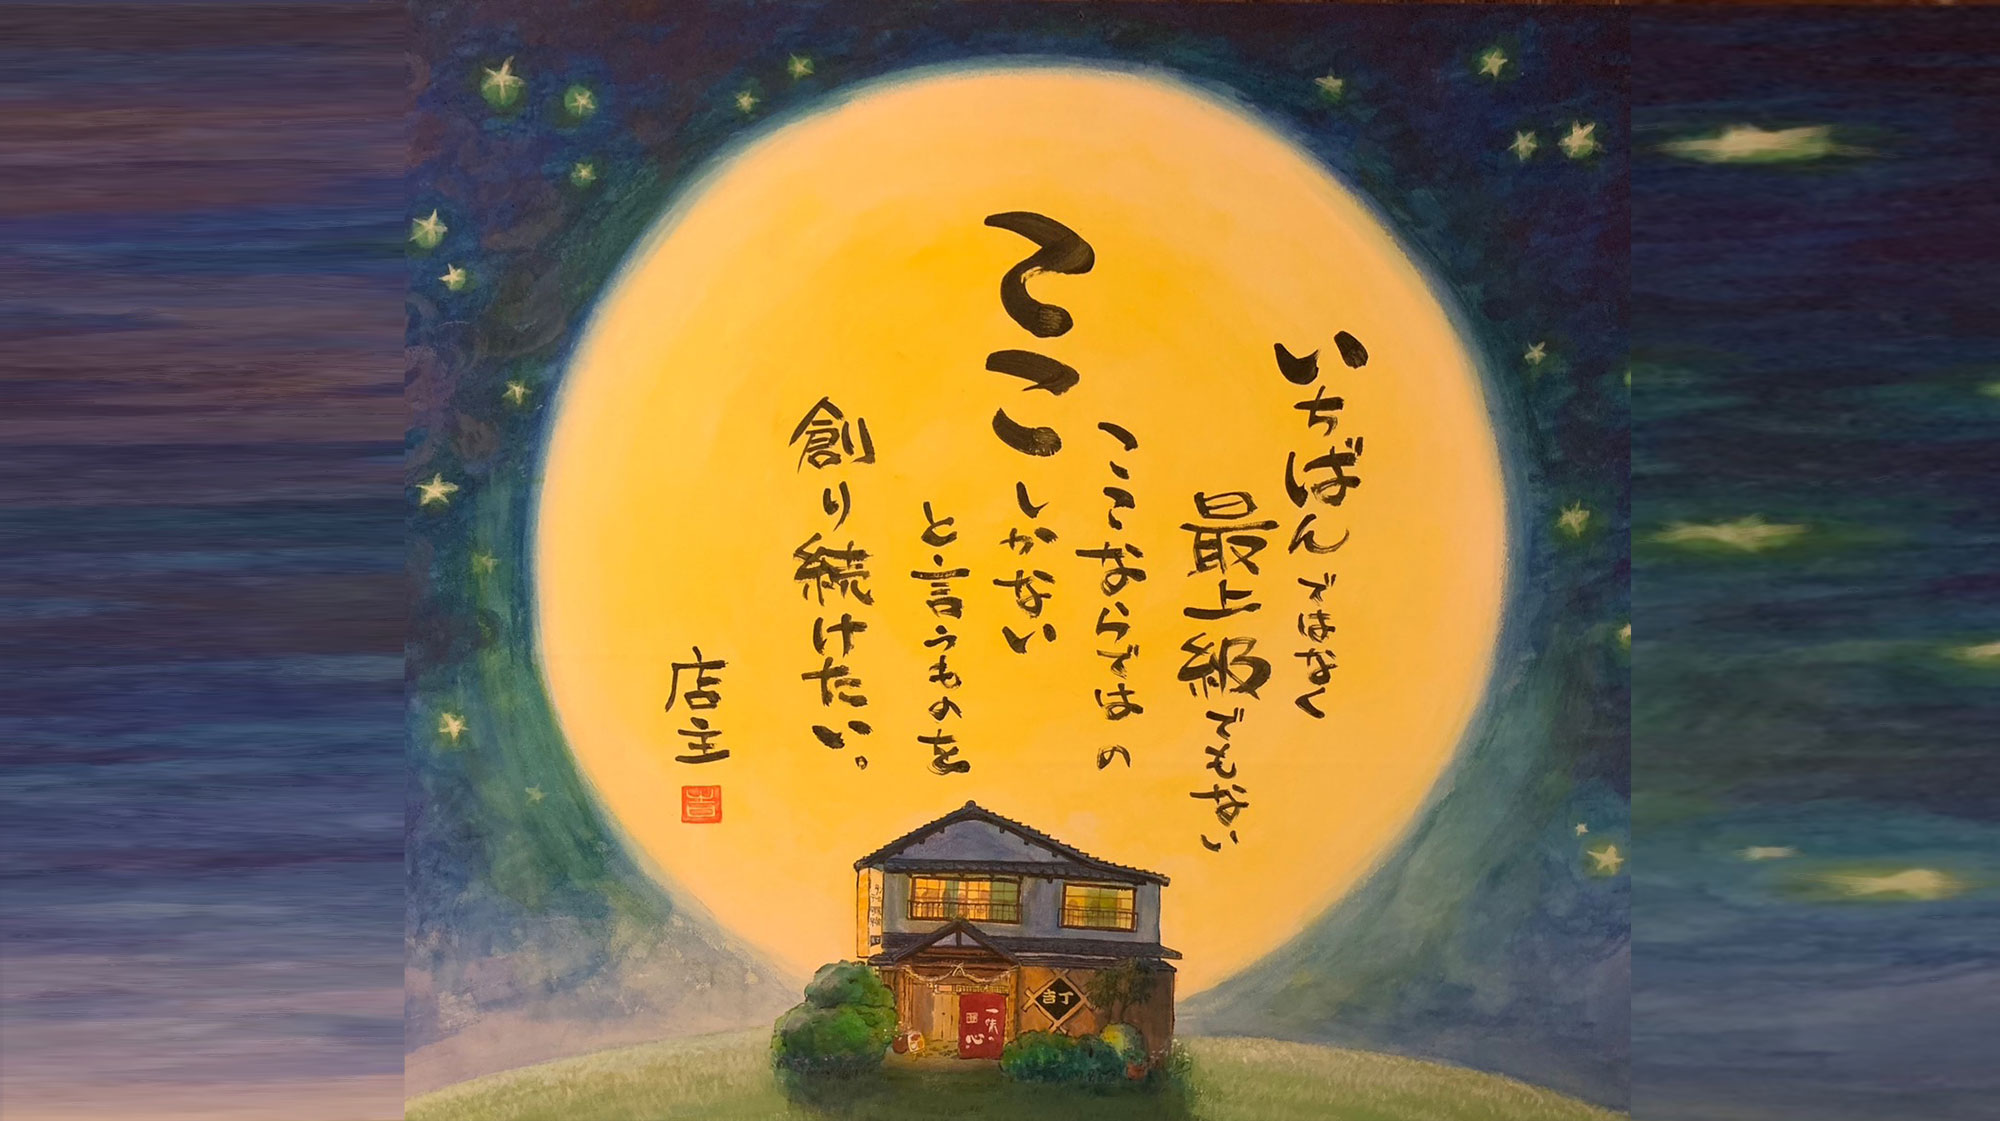 いちばんではなく
最上級でもない
ここならではの
ここしかない
と言うものを
創り続けたい。
店主
吉
吉丁